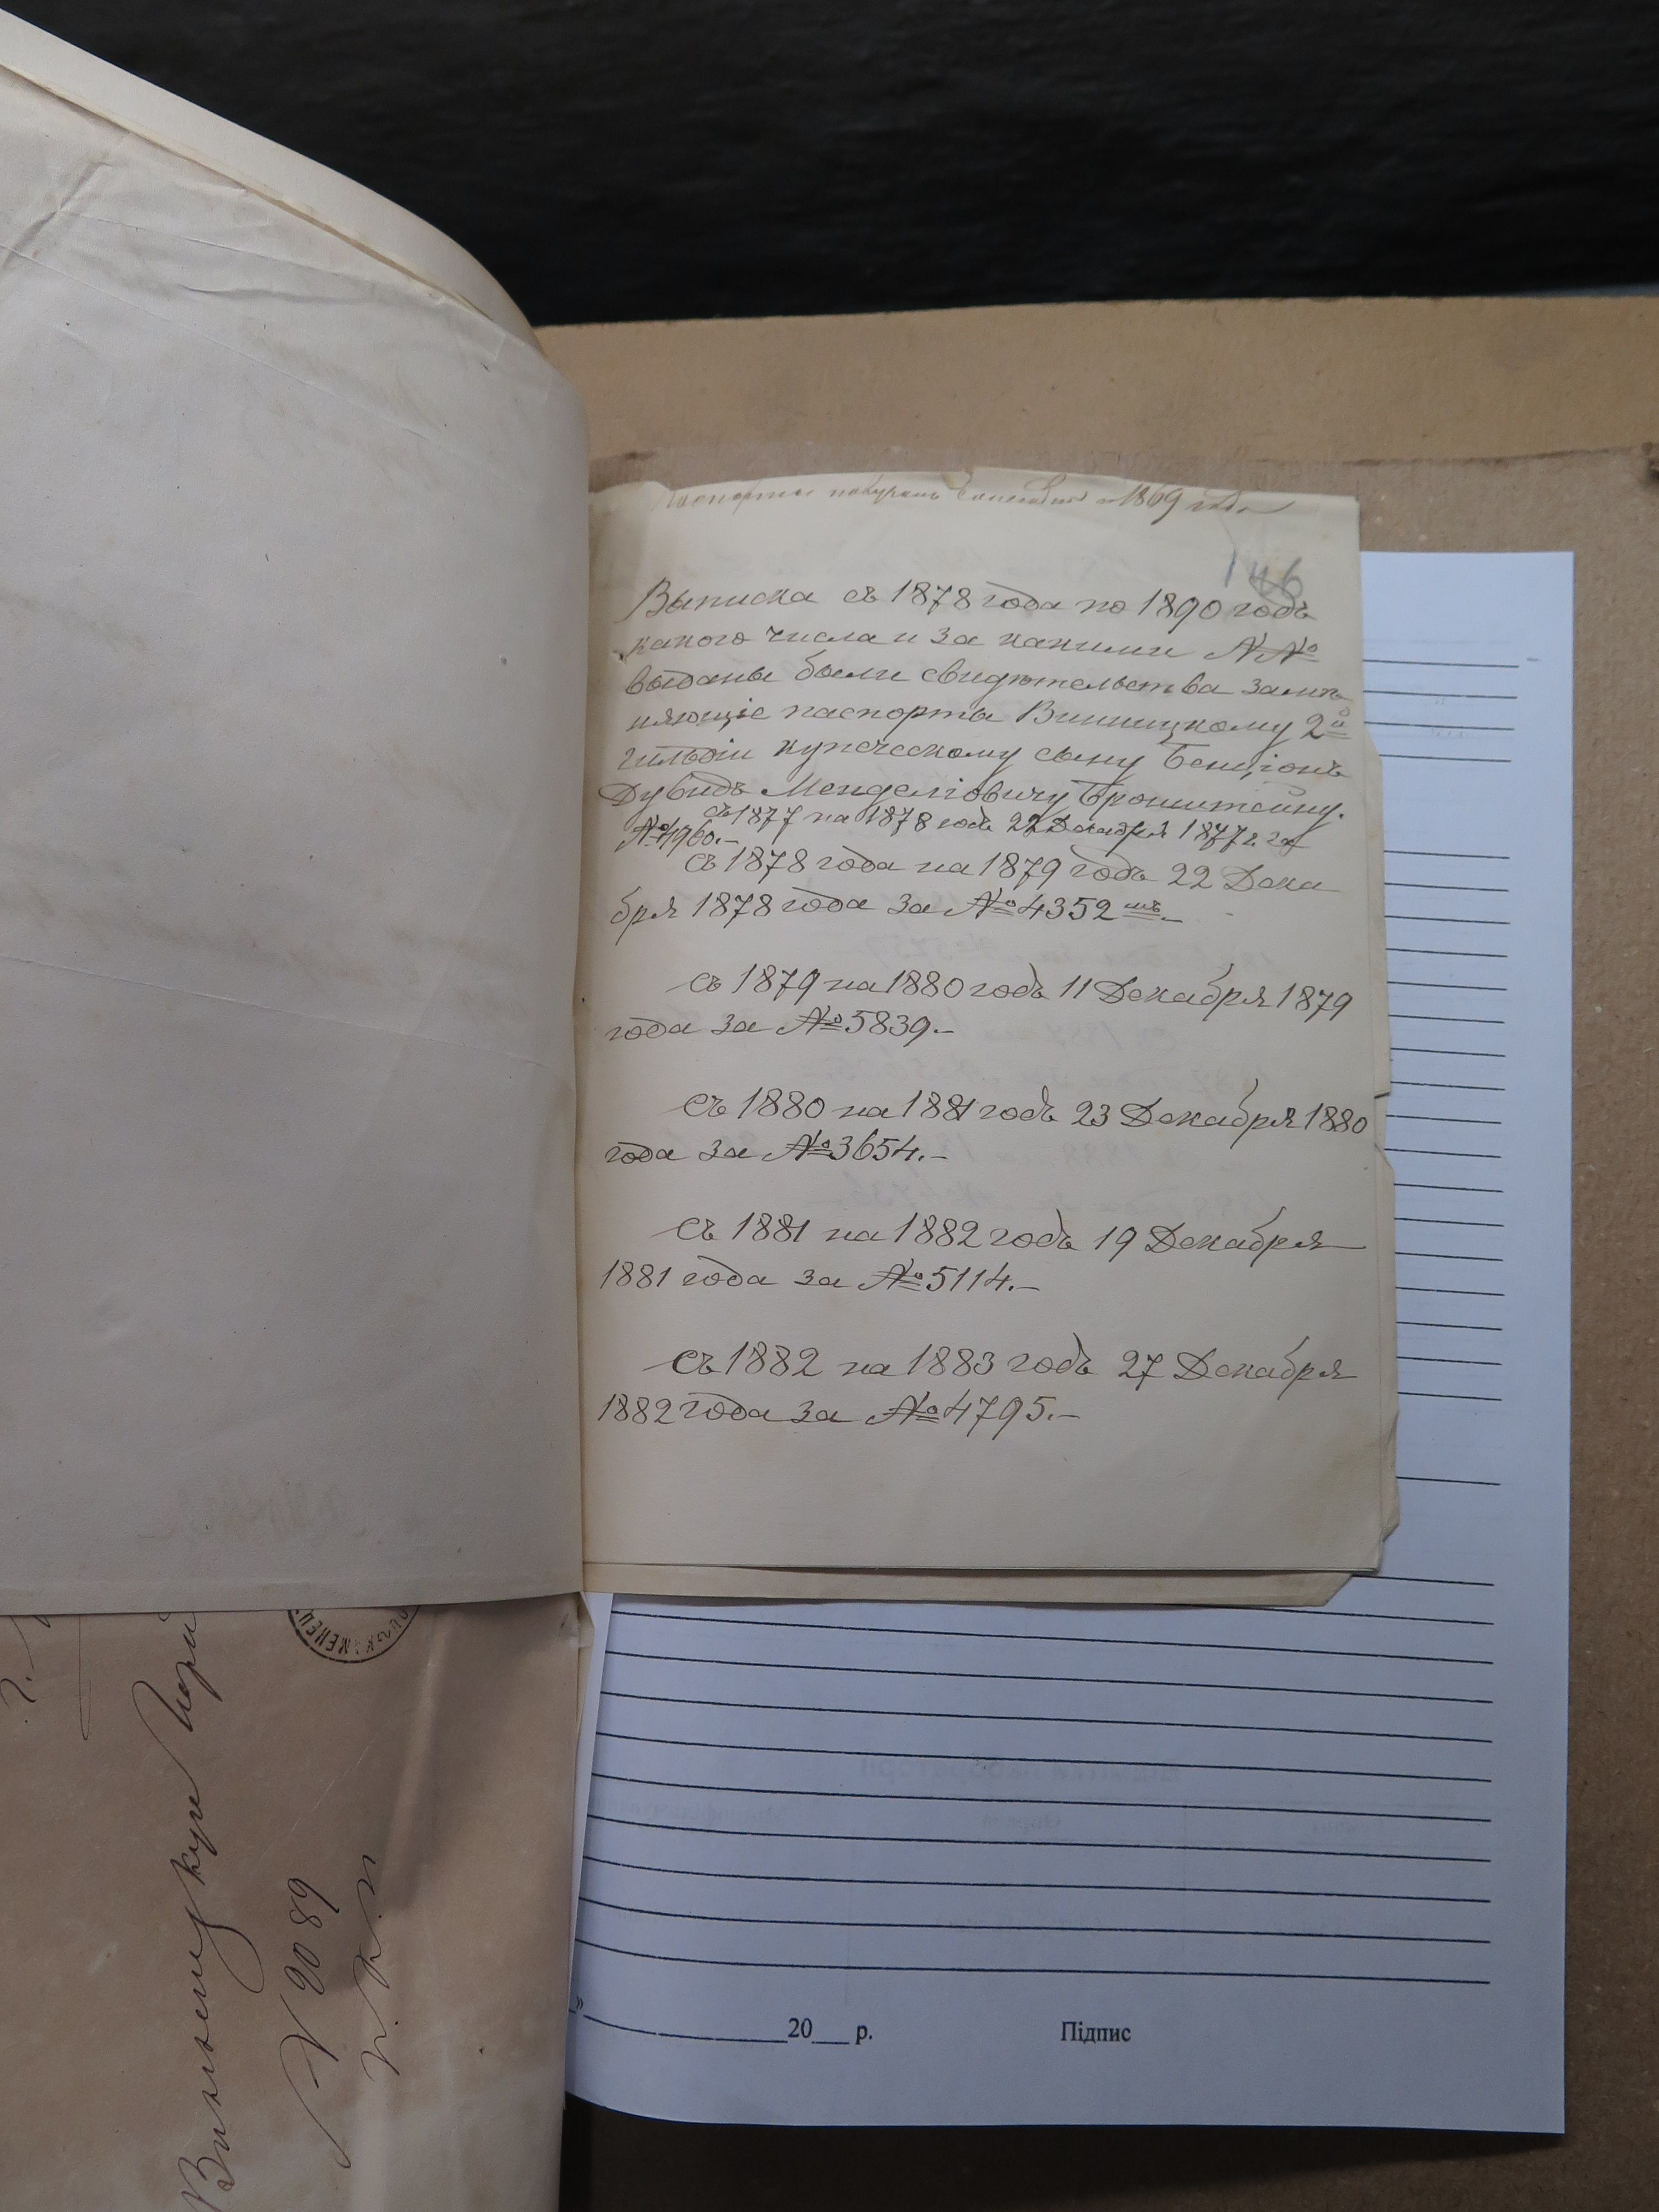 Паспорты получалъ ежегодно съ 1869 года
146
Выписка съ 1878 года по 1890 годъ
какого числа и за какими №№
выданы были свидѣтельства замѣ
няющіе паспорты Винницкому 2й
гильдіи купеческому сыну Бенціонъ
Дувидъ Менделіовичу Бронштейну.
съ 1877 на 1878 годъ 22 Декабря 1877 г. за
№ 4960.-
съ 1878 года на 1879 годъ 22 Дека
бря 1878 года за № 4352мъ.-
съ 1879 на 1880 годъ 11 Декабря 1879
года за № 5839.-
съ 1880 на 1881 годъ 23 Декабря 1880
года за № 3654.-
съ 1881 на 1882 годъ 19 Декабря
1881 года за № 5114.-
съ 1882 на 1883 годъ 27 Декабря
1882 года за № 4795.-
КАМЕНЕЦ
№ 2089
"___ 20___ р. Підпис